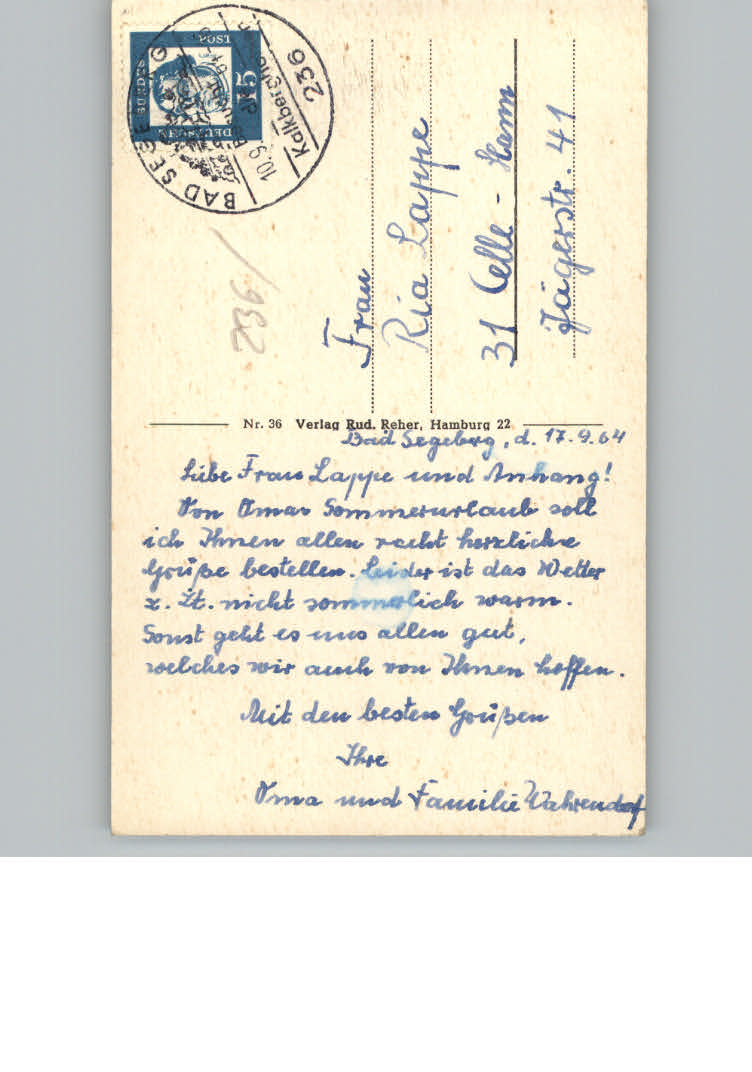 BAD SEGE G
236
Kalkberghö
10.9.
DEUTSCHE
BUNDESPOST
15
236/
Frau
Ria Lappe
31 Celle - Hann
Jägerstr. 41
Nr. 36 Verlag Rud. Reher, Hamburg 22
Bad Segeberg, d. 17.9.64
Liebe Frau Lappe und Anhang!
Von Omas Sommerurlaub soll
ich Ihnen allen recht herzliche
Grüße bestellen. Leider ist das Wetter
z. Zt. nicht sommerlich warm.
Sonst geht es uns allen gut,
welches wir auch von Ihnen hoffen.
Mit den besten Grüßen
Ihre
Oma und Familie Wahrendorf